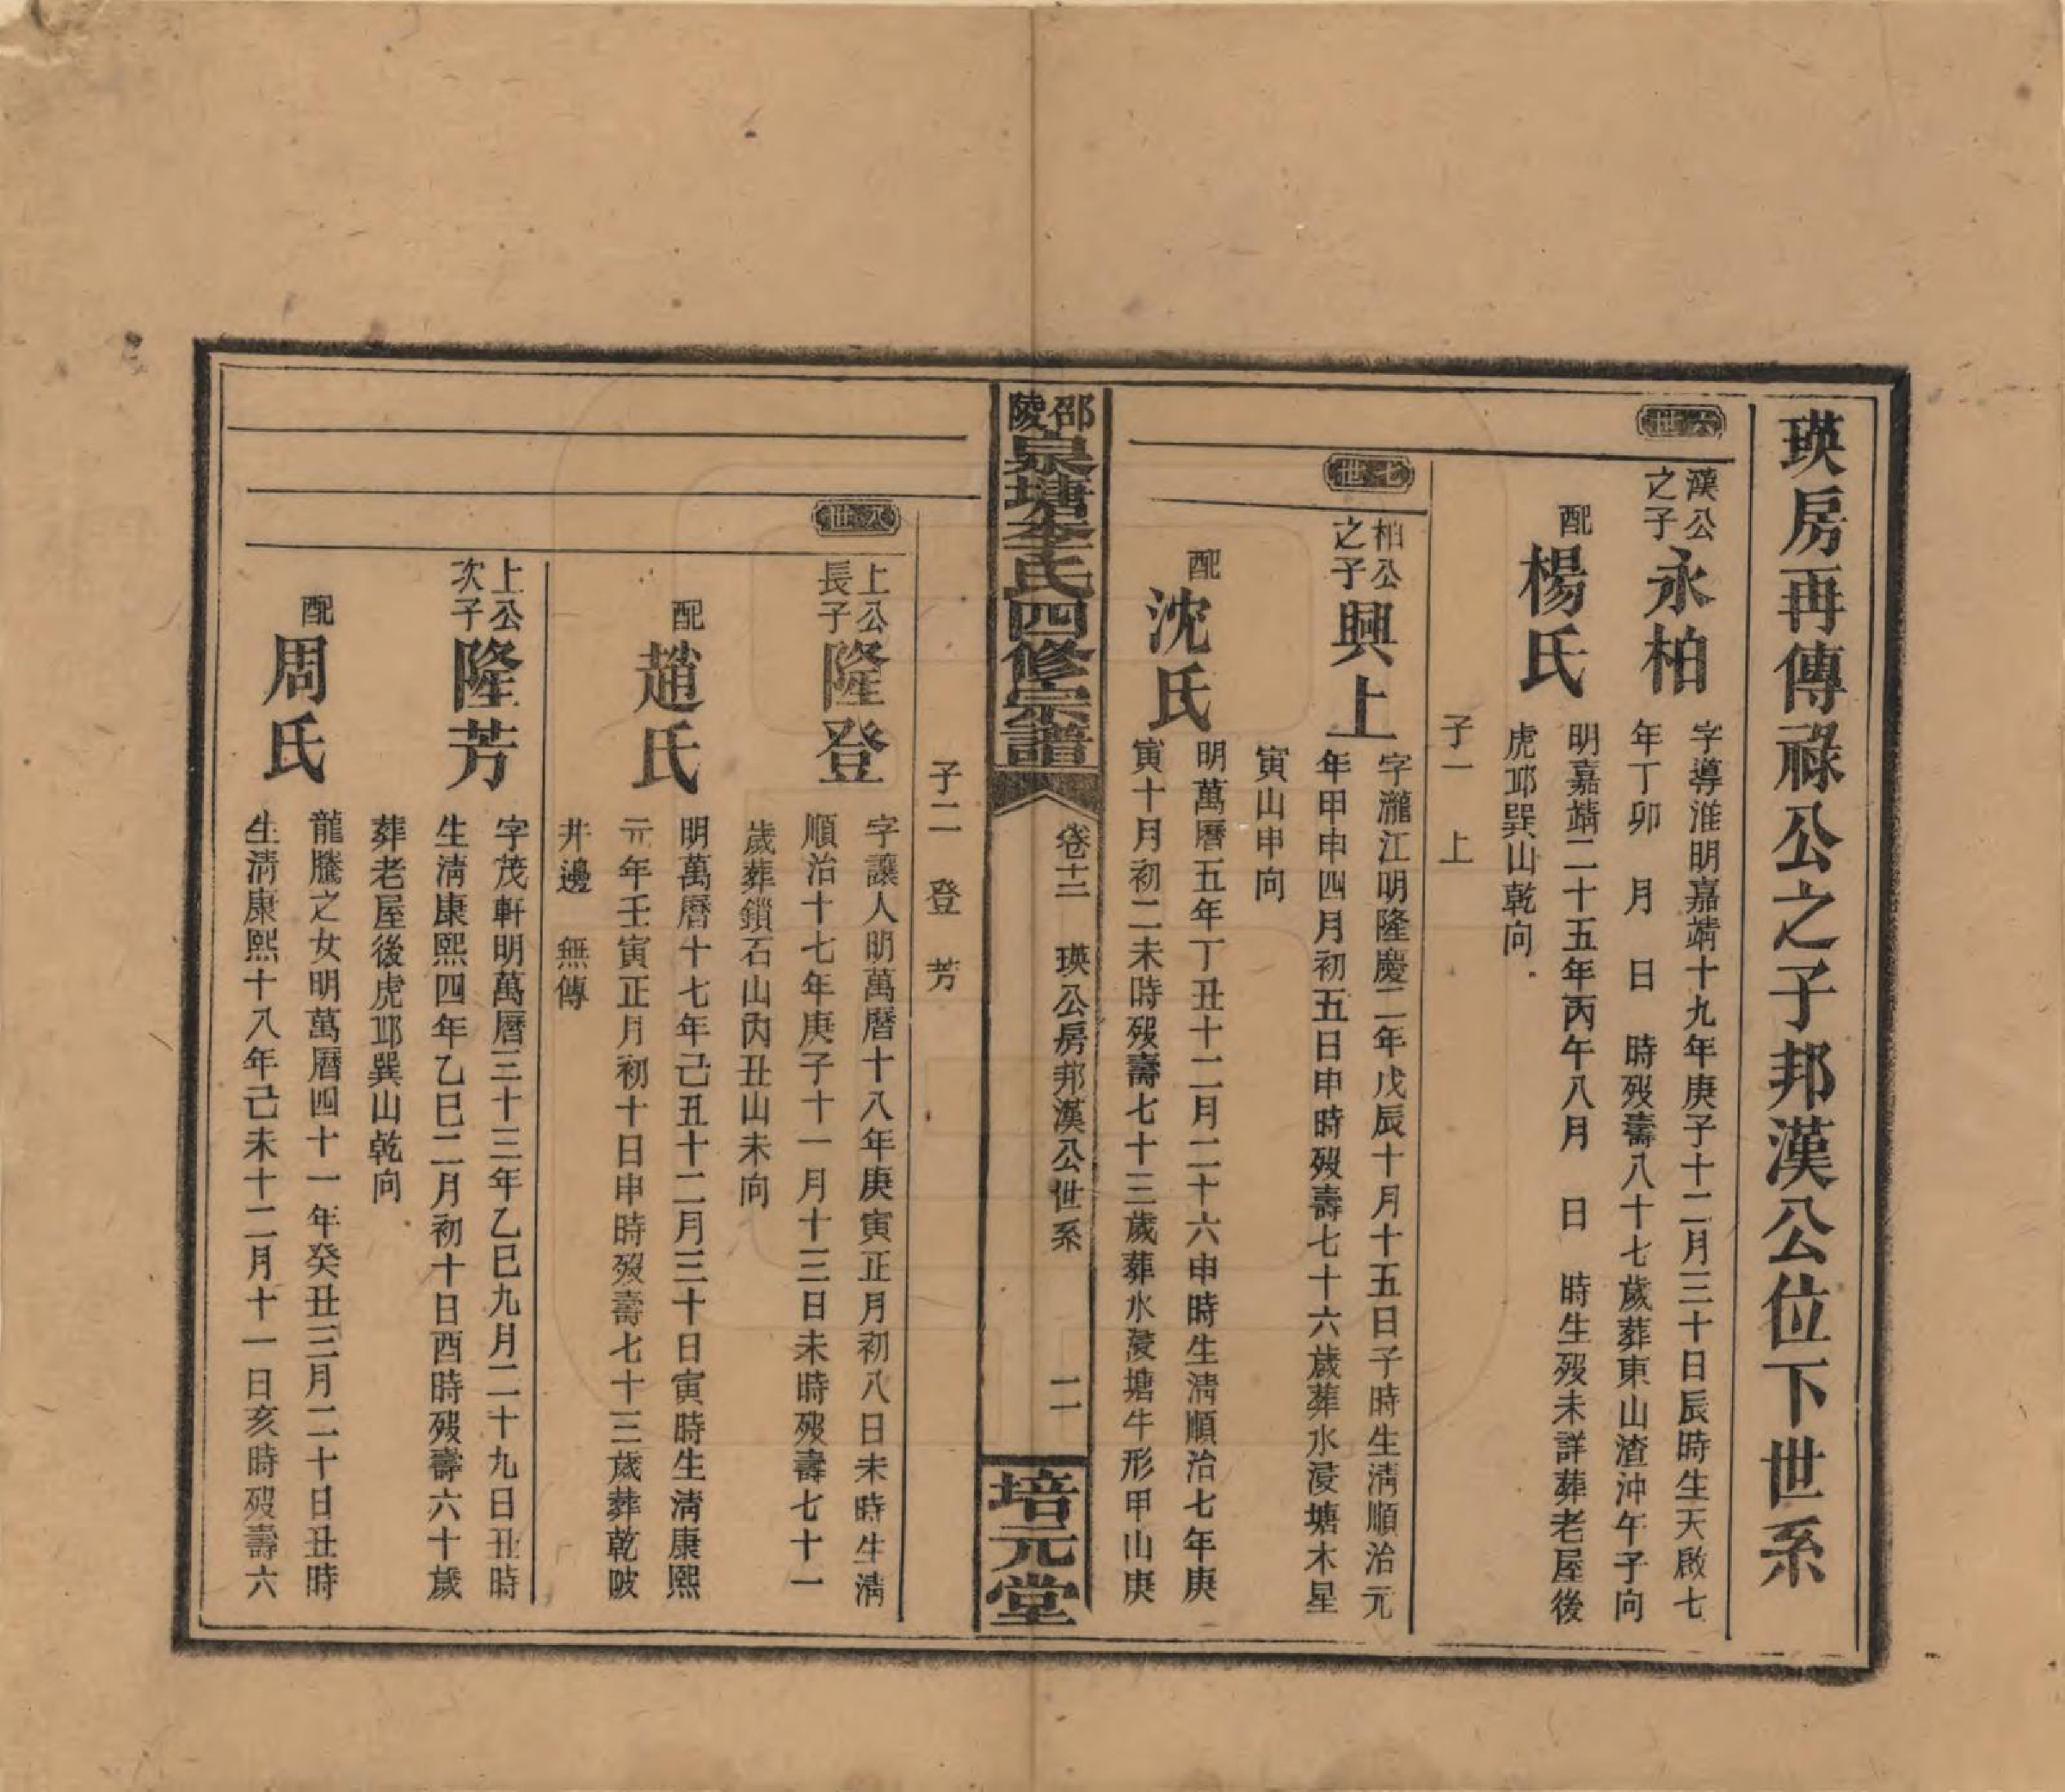 瑛房再傳祿公之子邦漢公位下世系
六世
漢公之子
永柏
字導淮明嘉靖十九年庚子十二月三十日辰時生天啟七
年丁卯 月 日 時歿壽八十七歲葬東山渣沖午子向
配
楊氏
明嘉靖二十五年丙午八月 日 時生歿未詳葬老屋後
虎邱巽山乾向
子一 上
七世
柏公之子
興上
字瀧江明隆慶二年戊辰十月十五日子時生淸順治元
年甲申四月初五日申時歿壽七十六歲葬水浸塘木星
寅山申向
配
沈氏
明萬曆五年丁丑十二月二十六申時生淸順治七年庚
寅十月初二未時歿壽七十三歲葬水浸塘牛形甲山庚
邵陵
泉塘李氏四修宗譜
卷十二
瑛公房邦漢公世系
二
培元堂
子二 登 芳
八世
上公長子
隆登
字讓人明萬曆十八年庚寅正月初八日未時生淸
順治十七年庚子十一月十三日未時歿壽七十一
歲葬鎖石山內丑山未向
配
趙氏
明萬曆十七年己丑十二月三十日寅時生淸康熙
元年壬寅正月初十日申時歿壽七十三歲葬乾坡
井邊 無傳
上公次子
隆芳
字茂軒明萬曆三十三年乙巳九月二十九日丑時
生淸康熙四年乙巳二月初十日酉時歿壽六十歲
葬老屋後虎邱巽山乾向
配
周氏
龍騰之女明萬曆四十一年癸丑三月二十日丑時
生淸康熙十八年己未十二月十一日亥時歿壽六